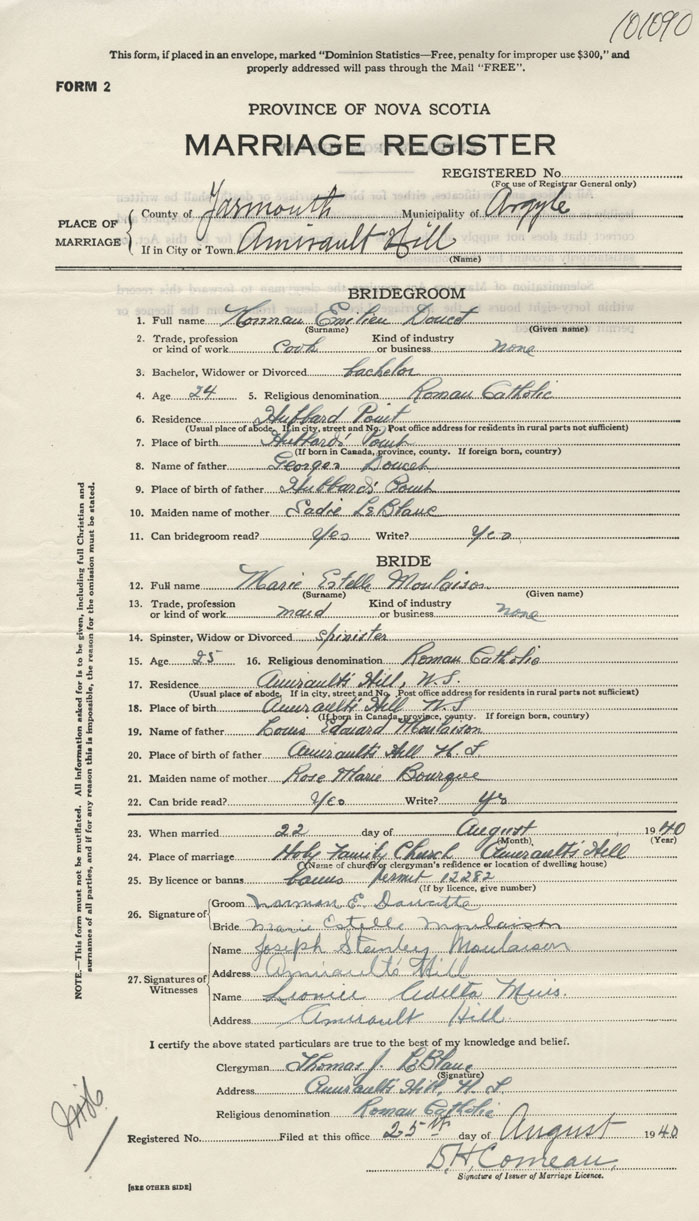 101090
This form, if placed in an envelope, marked "Dominion Statistics—Free, penalty for improper use $300," and
properly addressed will pass through the Mail "FREE".
FORM 2
PROVINCE OF NOVA SCOTIA
MARRIAGE REGISTER
REGISTERED No.
(For use of Registrar General only)
PLACE OF MARRIAGE
County of Yarmouth Municipality of Argyle
If in City or Town Amirault Hill
(Name)
BRIDEGROOM
1. Full name Norman Emilien Doucet
(Surname) (Given name)
2. Trade, profession or kind of work Cook Kind of industry or business none
3. Bachelor, Widower or Divorced bachelor
4. Age 24 5. Religious denomination Roman Catholic
6. Residence Hubbard Point
(Usual place of abode. If in city, street and No. Post office address for residents in rural parts not sufficient)
7. Place of birth Hubbards' Point
(If born in Canada, province, county. If foreign born, country)
8. Name of father Georges Doucet
9. Place of birth of father Hubbards' Point
10. Maiden name of mother Sadie LeBlanc
11. Can bridegroom read? Yes Write? Yes
BRIDE
12. Full name Marie Estelle Moulaison
(Surname) (Given name)
13. Trade, profession or kind of work maid Kind of industry or business none
14. Spinster, Widow or Divorced spinister
15. Age 25 16. Religious denomination Roman Catholic
17. Residence Amirault's Hill, N.S.
(Usual place of abode. If in city, street and No. Post office address for residents in rural parts not sufficient)
18. Place of birth Amirault's Hill N.S
(If born in Canada, province, county. If foreign born, country)
19. Name of father Louis Edouard Moulaison
20. Place of birth of father Amirault's Hill N.S.
21. Maiden name of mother Rose Marie Bourque
22. Can bride read? Yes Write? Yes
23. When married 22 day of August 1940
(Month) (Year)
24. Place of marriage Holy Family Church Amirault's Hill
(Name of church or clergyman's residence or location of dwelling house)
25. By licence or banns banns permit 12282
(If by licence, give number)
26. Signature of
Groom Norman E. Doucette
Bride Marie Estelle Moulaison
27. Signatures of Witnesses
Name Joseph Stanley Moulaison
Address Amirault's Hill
Name Leonice Muis.
Address Amirault Hill
I certify the above stated particulars are true to the best of my knowledge and belief.
Clergyman Thomas J. LeBlanc
(Signature)
Address Amirault's Hill, N.S.
Religious denomination Roman Catholic
Registered No. Filed at this office 25th day of August 1940
D.H. Comeau
Signature of Issuer of Marriage Licence.
[SEE OTHER SIDE]
NOTE.—This form must not be mutilated. All information asked for is to be given, including full Christian and
surnames of all parties, and if for any reason this is impossible, the reason for the omission must be stated.